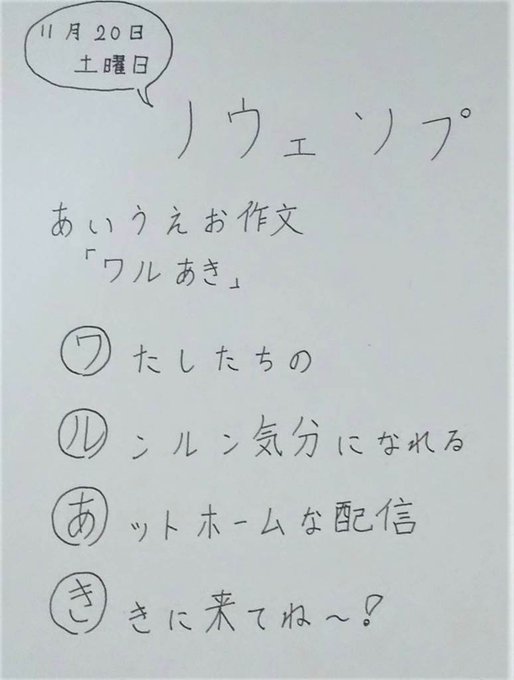 11月20日
土曜日
ノウェソプ
あいうえお作文
「ワルあき」
ワたしたちの
ルンルン気分になれる
あットホームな配信
ききに来てね～!